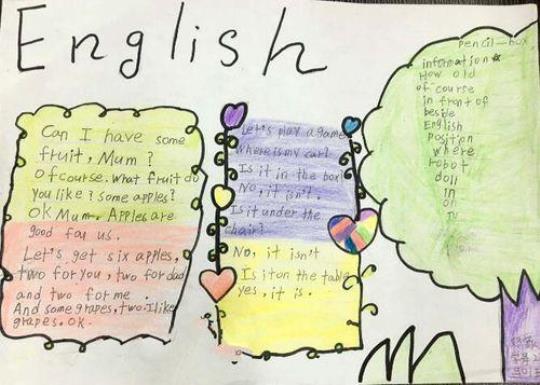 English
Can I have some
fruit, Mum?
Of course. What fruit do
you like? Some apples?
OK Mum. Apples are
good for us.
Let's get six apples,
two for you, two for dad
and two for me.
And some grapes, two. I like
grapes. OK.
Let's play a game
Where is my car?
Is it in the box
No, it isn't.
Is it under the
chair?
No, it isn't
Is it on the table
yes, it is.
pencil-box
information
How old
of course
in front of
beside
English
Position
where
robot
doll
in
on